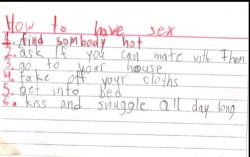 How to have sex
1. find sombody hot
2. ask if you can mate with them
3. go to your house
4. take off your cloths
5. get into bed
6. kiss and snuggle all day long